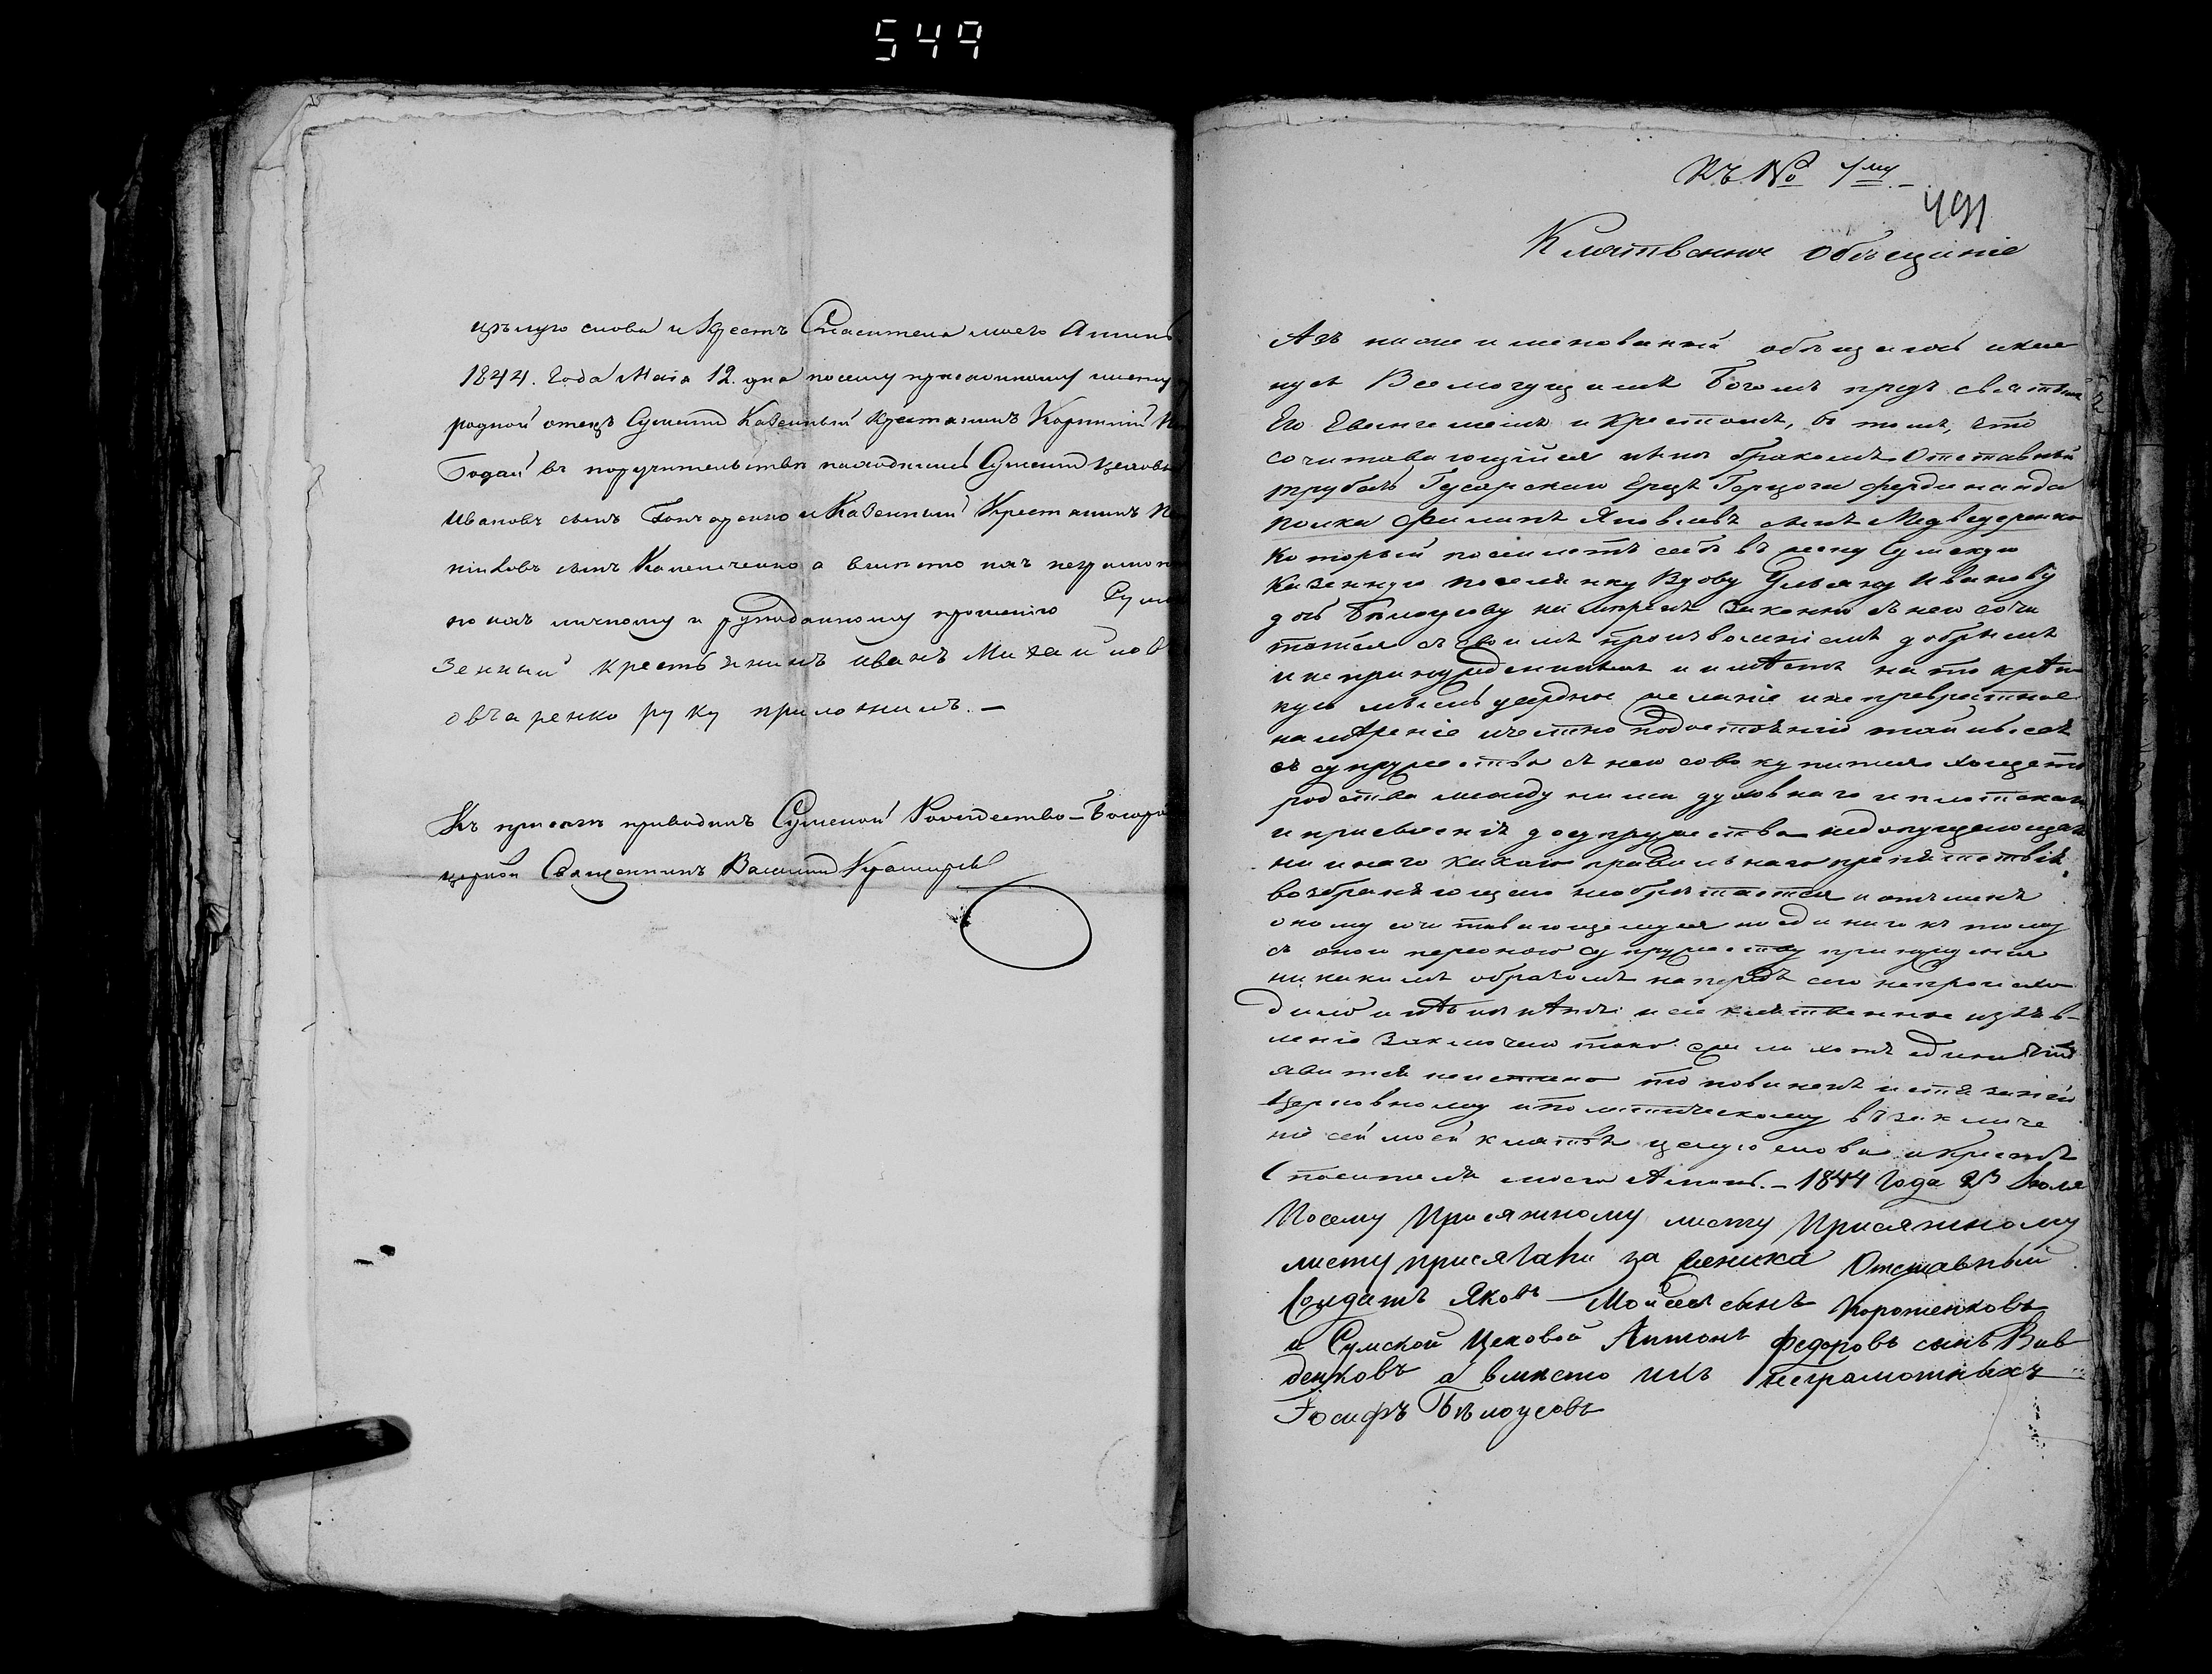 549
цѣлую слова и Крестъ Спасителя моего Аминь
1844. Года Маія 12. дня по сему присяжному листу
родной отецъ Сумской Казенный крестьянинъ Корнилій
Годай въ поручительствѣ находились Сумской цеховый
Ивановъ сынъ Гончаренко и Казенный Крестьянинъ
сынъ Копличенко а вмѣсто ихъ неграмот
по ихъ личному и рукоданному прошенію Сум
зенный крестьянинъ иванъ Михайлов
овчаренко руку приложилъ. —
Къ присягѣ приводилъ Сумской Рождество-Богоро
церкви Священникъ Василій
Къ № 1му
491
Клятвенное обѣщаніе
Азъ нижеименованный обѣщаюсь и кле
нусь Всемогущимъ Богомъ предъ святымъ
Его Евангеліемъ и крестомъ, въ томъ, что
сочитавающійся нынѣ бракомъ Отставный
трубачъ Гусарскаго Ерцъ Герцога Фердинанда
полка Филипъ Яковлевъ сынъ Медведенко
который поемлетъ себѣ въ жену Сумскую
Казенную поселянку Вдову Ульяну Иванову
дочь Бѣлоусову намѣренъ законно съ нею соче
татся съ своимъ произволеніемъ добрымъ
и непринужденнымъ и имѣетъ на то крѣп
кую мысль усердное желаніе и непревратное
намѣреніе и честно подостоянію тайны сея
въ супружество съ нею совокупится хощетъ
родства между ними духовнаго и плотскаго
и присвоенія до супружества недопущающаго
ни инаго какого правильнаго препятствія
возбраняющаго необрѣтается и отъ мене
оному сочитавающемуся ноединаго къ тому
съ оною персоною супружеству принужденія
никакимъ образомъ напредъ сего непроисхо
дило и нѣ и сіе клятвенное изъяв-
леніе заключаю тако: ежели хотя едина
явится неистенно то повиненъ истязанію
Церковному и политическому въ заключе
ніе сей моей клятвы цѣлую слова и крестъ
Спасителя моего Аминь. — 1844 Года 23 Іюля
По сему Присяжному листу Присяжному
листу присягали за жениха Отставный
Солдатъ Яковъ Моисеевъ сынъ Коротенковъ
и Сумской Цеховой Антонъ Федоровъ сынъ Вав
денковъ а вмѣсто ихъ неграмотныхъ
Іосифъ Бѣлоусовъ